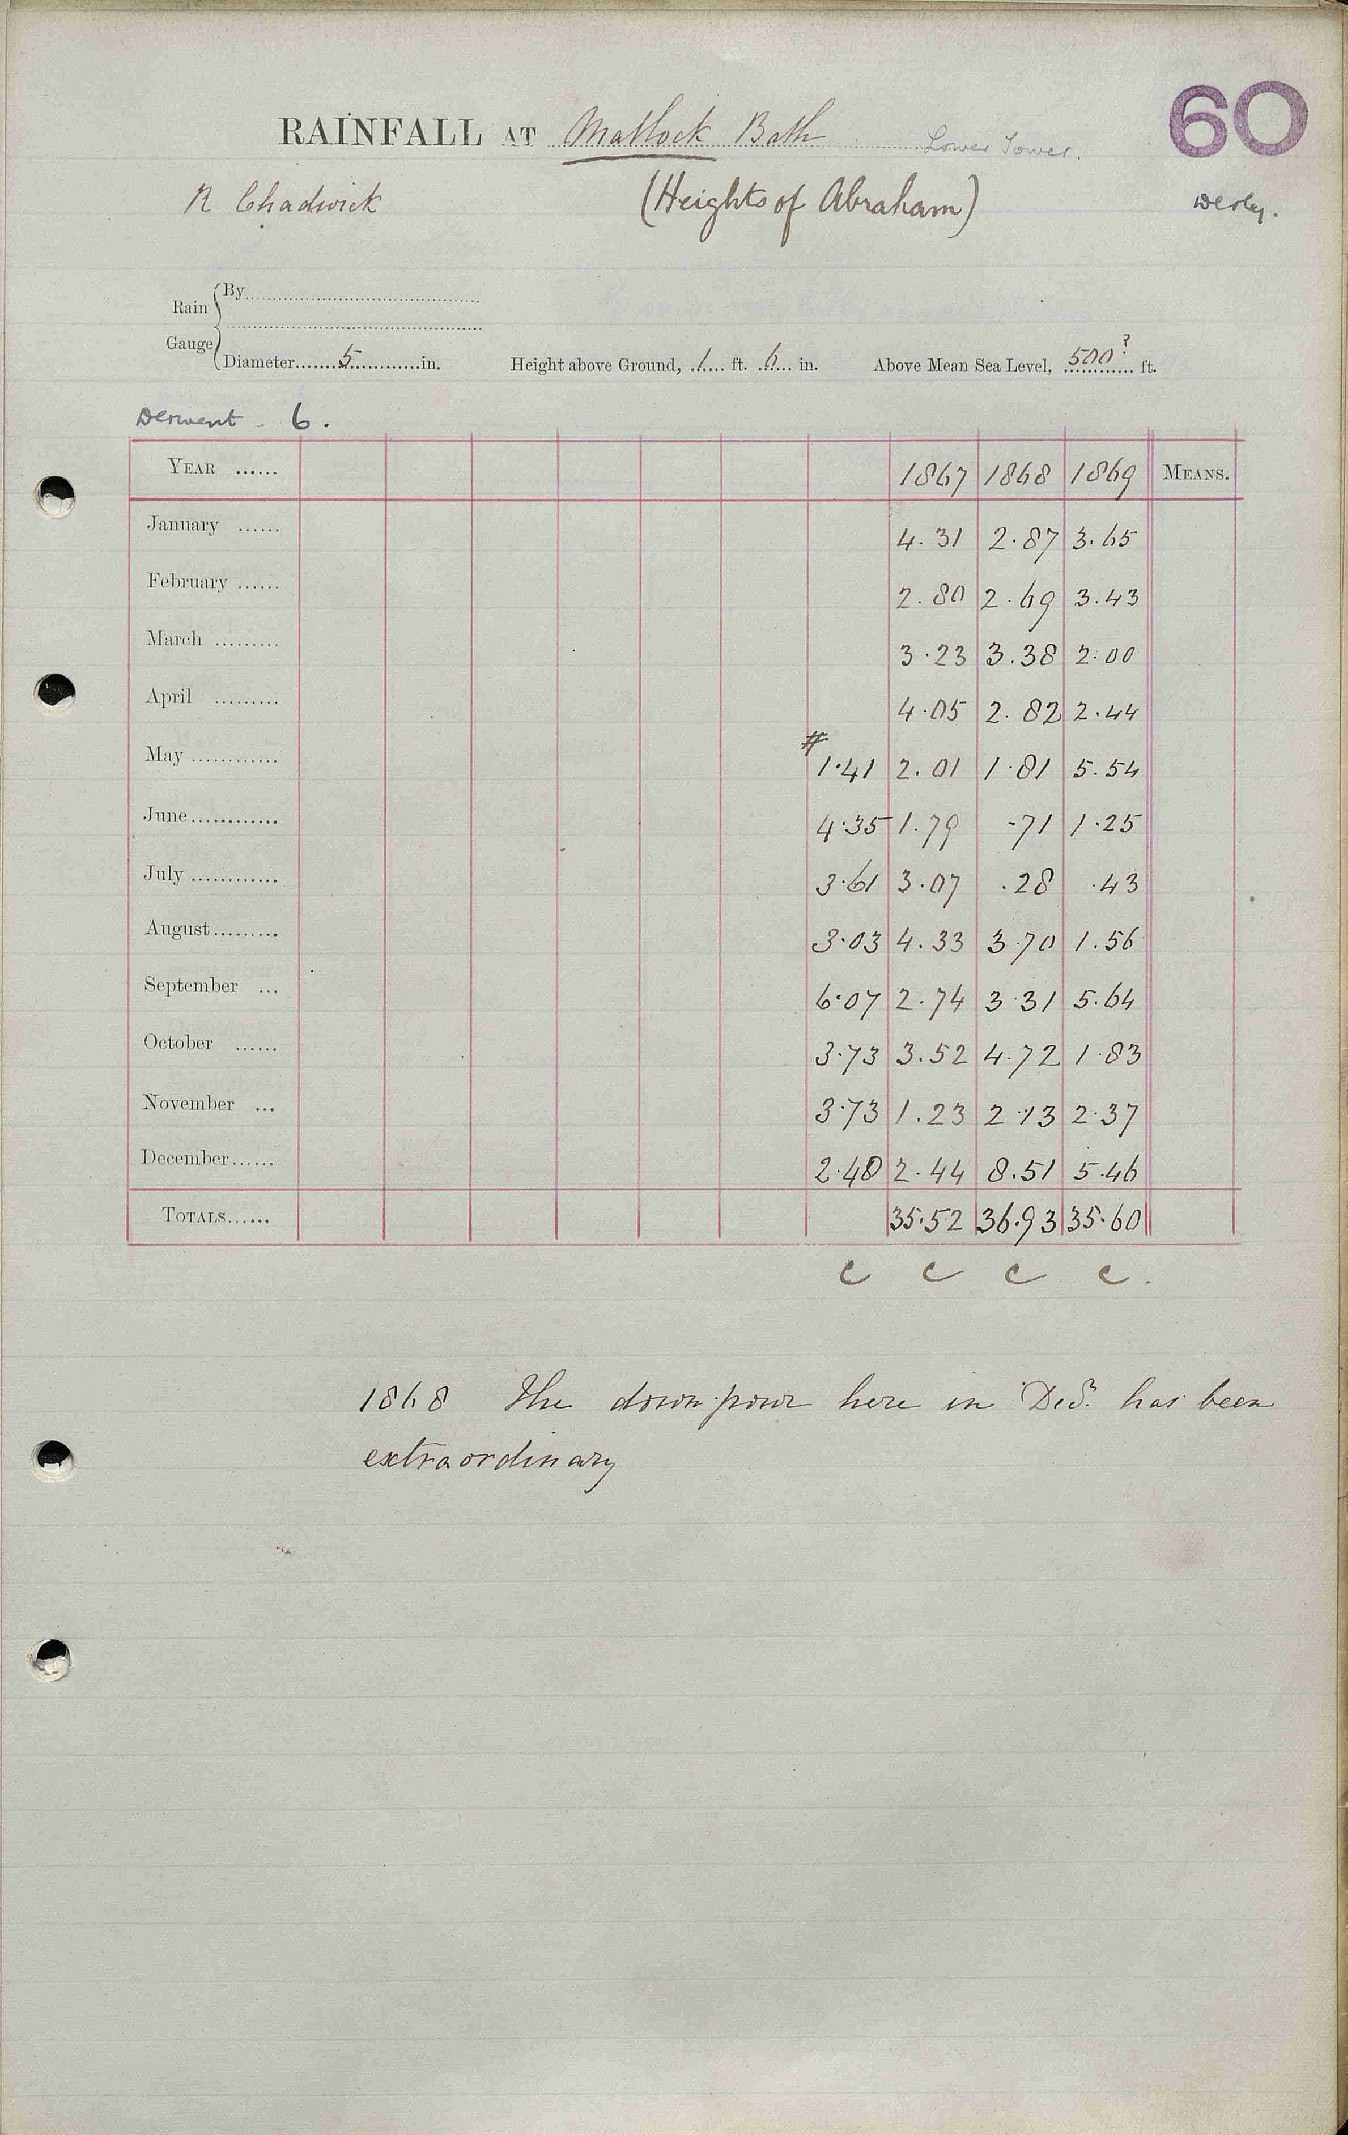 60
RAINFALL AT Matlock Bath Lower Tower.
R Chadwick (Heights of Abraham) Derby.
Rain Gauge
By
Diameter 5 in. Height above Ground, 1 ft. 6 in. Above Mean Sea Level, 500? ft.
Derwent - 6.
YEAR ...... 1867 1868 1869 MEANS.
January ...... 4.31 2.87 3.65
February ...... 2.80 2.69 3.43
March ......... 3.23 3.38 2.00
April ......... 4.05 2.82 2.44
May ............ # 1.41 2.01 1.81 5.54
June............ 4.35 1.79 .71 1.25
July ............ 3.61 3.07 .28 .43
August......... 3.03 4.33 3.70 1.56
September ... 6.07 2.74 3.31 5.64
October ...... 3.73 3.52 4.72 1.83
November ... 3.73 1.23 2.13 2.37
December...... 2.40 2.44 8.51 5.46
TOTALS...... 35.52 36.93 35.60
c c c c.
1868 The downpour here in Decr. has been
extraordinary